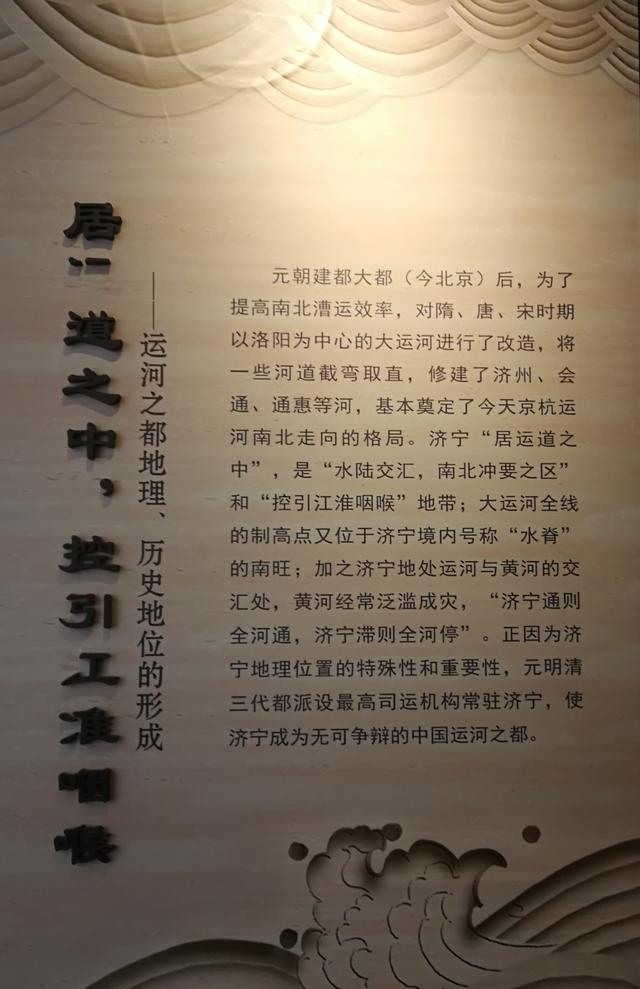 居道之中，控引工准咽喉
——运河之都地理、历史地位的形成
元朝建都大都（今北京）后，为了
提高南北漕运效率，对隋、唐、宋时期
以洛阳为中心的大运河进行了改造，将
一些河道截弯取直，修建了济州、会
通、通惠等河，基本奠定了今天京杭运
河南北走向的格局。济宁“居运道之
中”，是“水陆交汇，南北冲要之区”
和“控引江淮咽喉”地带；大运河全线
的制高点又位于济宁境内号称“水脊”
的南旺；加之济宁地处运河与黄河的交
汇处，黄河经常泛滥成灾，“济宁通则
全河通，济宁滞则全河停”。正因为济
宁地理位置的特殊性和重要性，元明清
三代都派设最高司运机构常驻济宁，使
济宁成为无可争辩的中国运河之都。